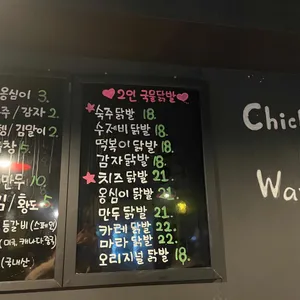 옹심이 3.
주 / 감자 2.
뎅 / 김말이 2.
창 5.
만두 10.
김 / 황도 5
등갈비 (스페인)
(미국, 캐나다, 중국)
(국내산
♥ 2인 국물닭발 ♥
★ 숙주닭발 18.
수제비 닭발 18.
떡볶이 닭발 18.
감자닭발 18.
★ 치즈닭발 21.
옹심이 닭발 21.
만두닭발 21.
카레 닭발 22.
마라 닭발 22.
오리지널 닭발 18.
Chic
Wa